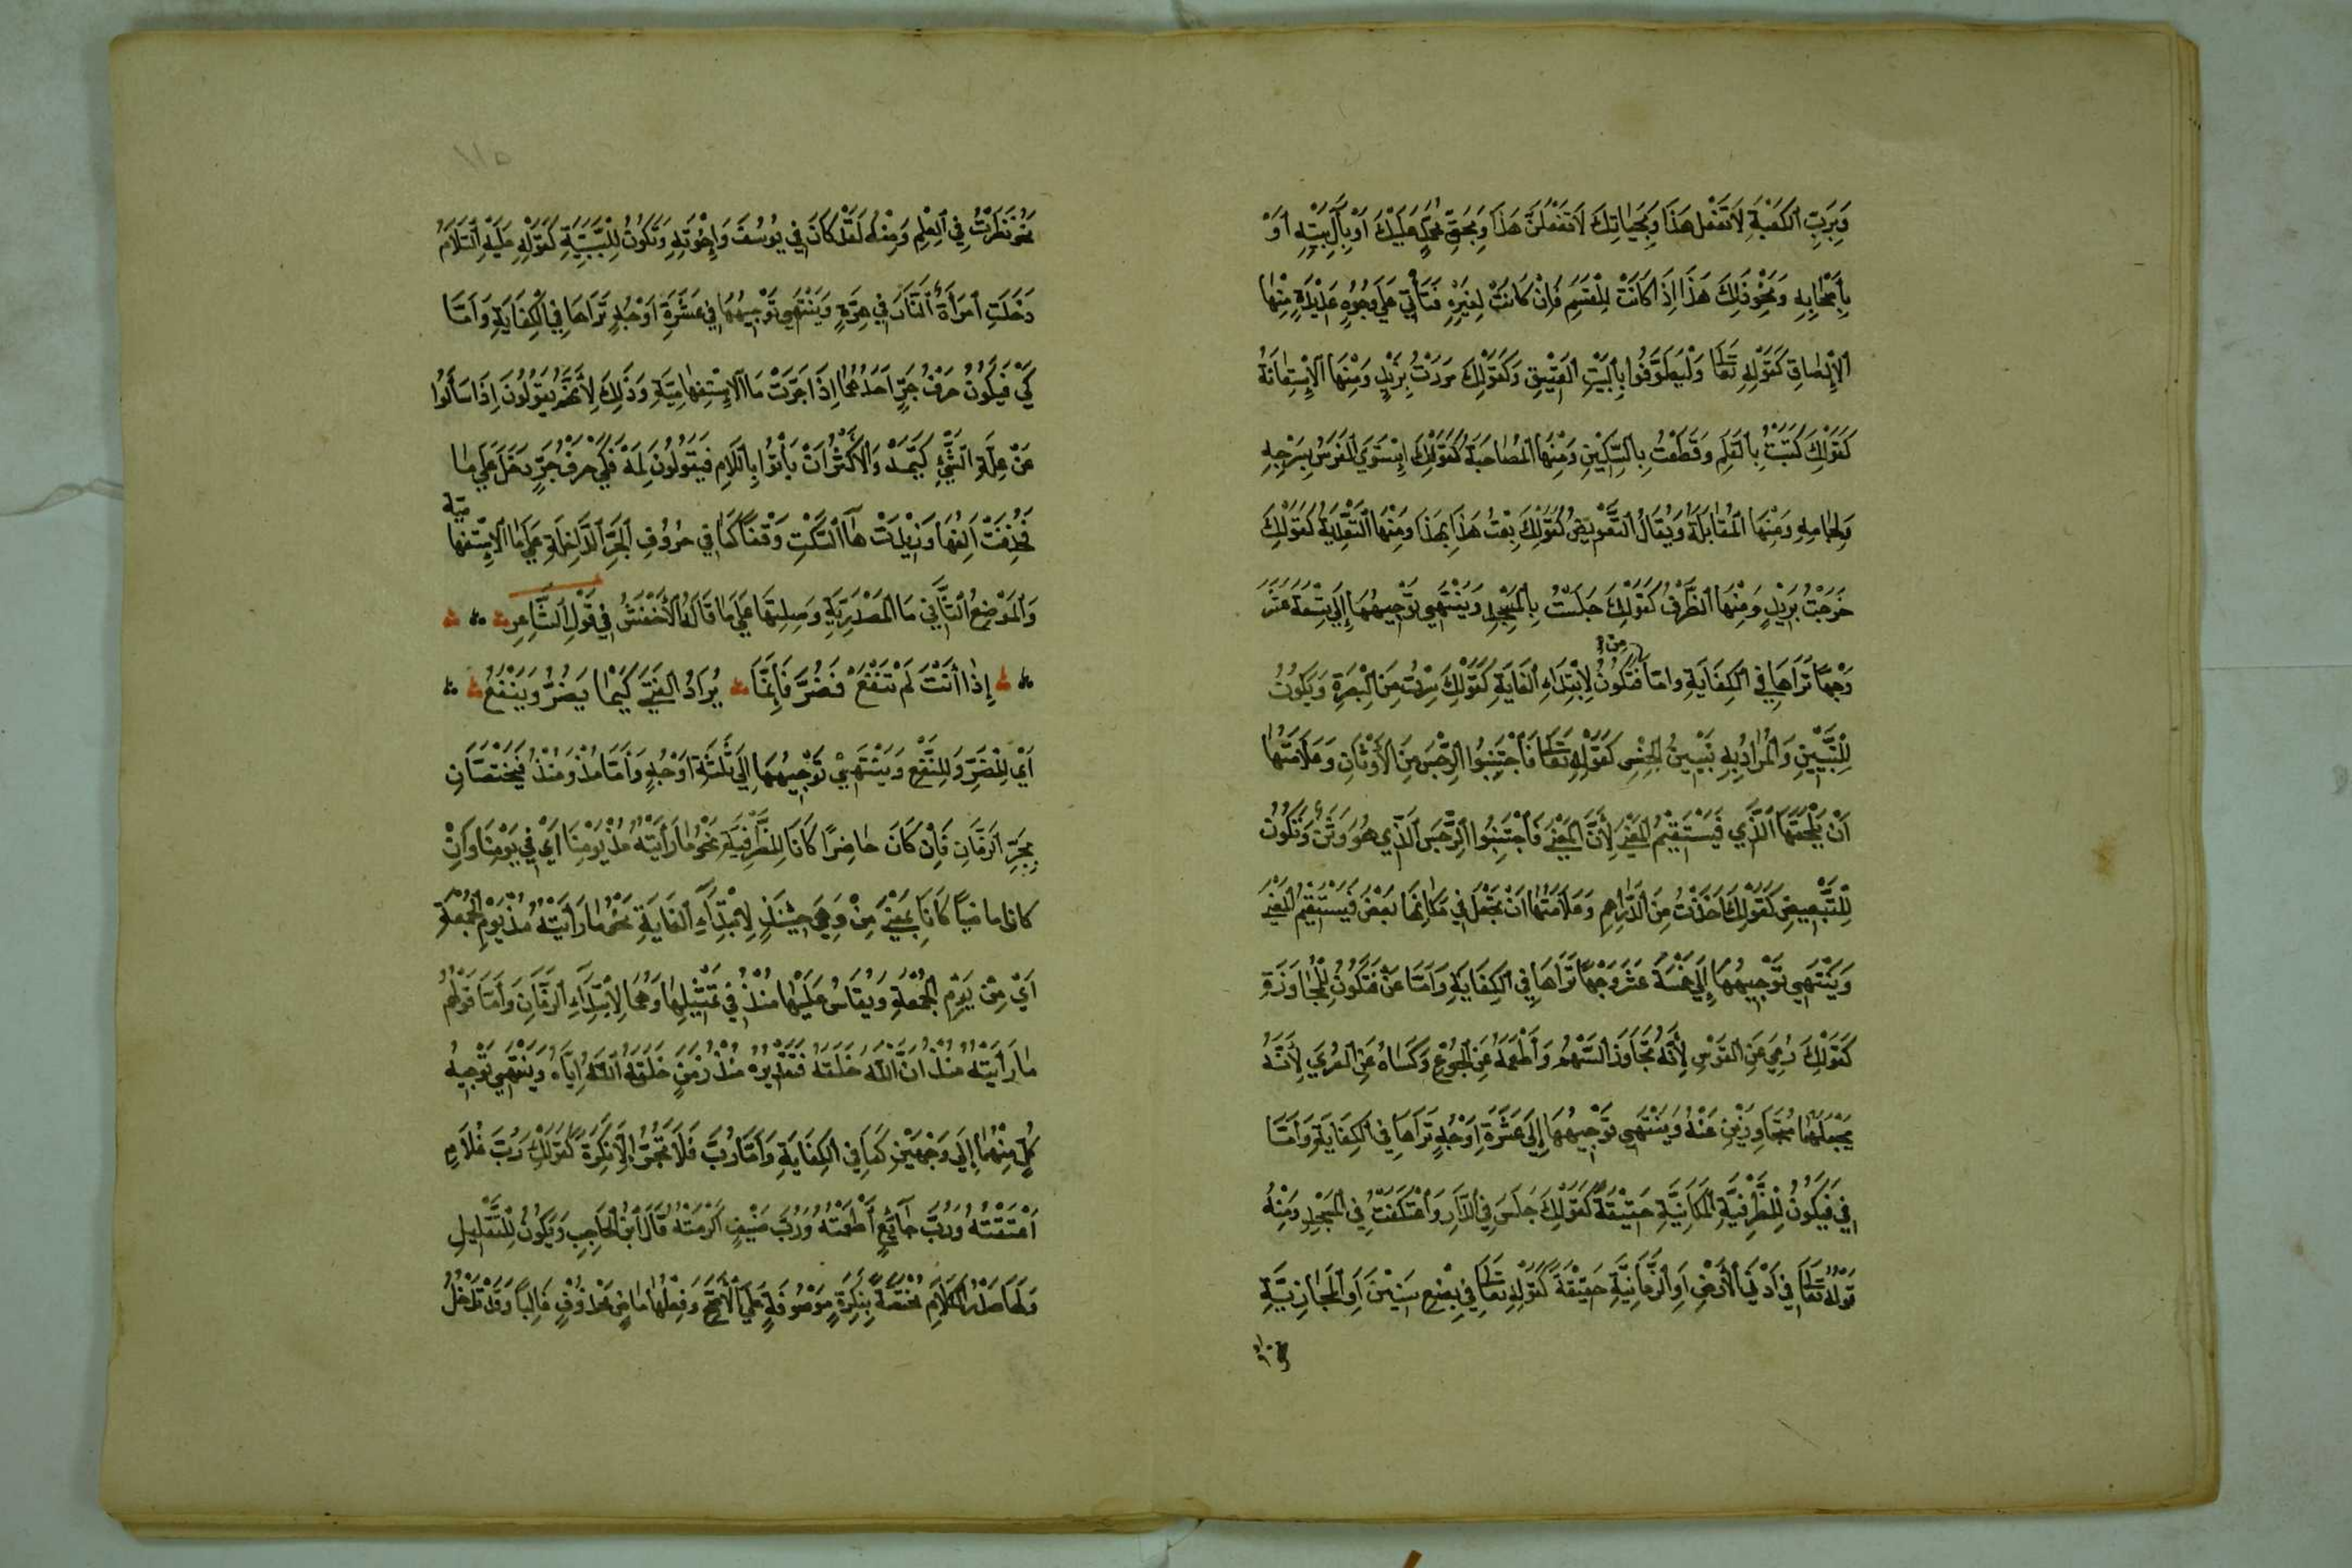 وَبِرَبِّ ٱلكَعْبَةِ لَاتَفْعَل هَذَا وَبِحَيَاتِكَ لَاتَفْعَلَنَّ هَذَا وَبِحَقِّ مُحَمَّدٍ عَلَيْكَ اَوْبِآلِ بَيْتِهِ اَوْ
بِأَصْحَابِهِ وَنَحْوِذَلِكَ هَذَا اِذَا كَانَتْ لِلْقَسَمِ فَاِنْ كَانَتْ لِغَيْرِهِ فَتَأْتِي عَلَي وُجُوهٍ عَدِيْدَةٍ مِنْهَا
اَلْاِلْصَاقِ كَقَوْلِهِ تَعَا وَلْيَطَّوَّفُوا بِالْبَيْتِ العَتِيقِ وَكَقَوْلِكَ مَرَرْتُ بِزَيْدٍ وَمِنْهَا الْاِسْتِعَانَةُ
كَقَوْلِكَ كَتَبْتُ بِالْقَلَمِ وَقَطَعْتُ بِالسِّكِّينِ وَمِنْهَا الْمُصَاحَبَةُ كَقَوْلِكَ اِسْتَوَي الْفَرَسُ بِسَرْجِهِ
وَلِجَامِهِ وَمِنْهَا الْمُقَابَلَةُ وَيُقَالُ التَّعْوِيضُ كَقَوْلِكَ بِعْتُ هَذَا بِهَذَا وَمِنْهَا التَّعْدِيَةُ كَقَوْلِكَ
خَرَجْتُ بِزَيْدٍ وَمِنْهَا الظَّرْفُ كَقَوْلِكَ جَلَسْتُ بِالْمَسْجِدِ وَيَنْتَهِي تَوْجِيهُهَا إِلَي تِسْعَةَ عَشَرَ
وَجْهًا تَرَاهَا فِي الْكِفَايَةِ وامّا من فَتَكُونُ لِاِبْتِدَاءِ الْغَايَةِ كَقَوْلِكَ سِرْتُ مِنَ الْبَصْرَةِ وَيَكُونُ
لِلتَّبْيِينِ وَالْمُرَادُ بِهِ تَبْيِينُ الْجِنْسِ كَقَوْلِهِ تَعَا فَاجْتَنِبُوا الرِّجْسَ مِنَ الْأَوْثَانِ وَعَلَامَتُهَا
اَنْ يَخْلُفَهَا الَّذِي فَيَسْتَقِيمُ الْمَعْنَى لِأَنَّ الْمَعْنَى فَاجْتَنِبُوا الرِّجْسَ الَّذِي هُوَ وَثَنٌ وَتَكُونُ
لِلتَّبْعِيضِ كَقَوْلِكَ اَخَذْتُ مِنَ الدَّرَاهِمِ وَعَلَامَتُهَا اَنْ تَجْعَلَ فِي مَكَانِهَا بَعْضُ فَيَسْتَقِيمُ الْمَعْنَى
وَيَنْتَهِي تَوْجِيهُهَا إِلَي خَمْسَةَ عَشَرَ وَجْهًا تَرَاهَا فِي الْكِفَايَةِ وَاَمَّا عَنْ فَتَكُونُ لِلْمُجَاوَزَةِ
كَقَوْلِكَ رُمِيَ عَنِ الْقَوْسِ لِأَنَّهُ تَجَاوَزَ السَّهْمُ وَأَطْعَمَهُ عَنِ الْجُوعِ وَكَسَاهُ عَنِ الْعُرْيِ لِأَنَّهُ
يَجْعَلُهُمَا مُتَجَاوِزَيْنِ عَنْهُ وَيَنْتَهِي تَوْجِيهُهَا إِلَي عَشَرَةِ اَوْجُهٍ تَرَاهَا فِي الْكِفَايَةِ وَاَمَّا
فِي فَيَكُونُ لِلظَّرْفِيَّةِ الْمَكَانِيَّةِ حَقِيْقَةً كَقَوْلِكَ جَلَسَ فِي الدَّارِ وَاعْتَكَفْتُ فِي الْمَسْجِدِ وَمِنْهُ
قَوْلُهُ تَعَا فِي اَدْنَي الْأَرْضِ اَوِ الزَّمَانِيَّةِ حَقِيْقَةً كَقَوْلِهِ تَعَا فِي بِضْعِ سِنِيْنَ اَوِ الْمَجَازِيَّةِ
نحو
١١٥
نَحْوُنَظَرْتُ فِي ٱلعِلْمِ وَمِنْهُ لَقَدْكَانَ فِي يُوسُفَ وَاِخْوَتِهِ وَتَكُونُ لِلسَّبَبِيَّةِ كَقَوْلِهِ عَلَيْهِ السَّلَامُ
دَخَلَتِ ٱمْرَأَةٌ النَّارَ فِي هِرَّةٍ وَيَنْتَهِي تَوْجِيهُهَا فِي عَشَرَةِ اَوْجُهٍ تَرَاهَا فِي الْكِفَايَةِ وَاَمَّا
كَيْ فَيَكُونُ حَرْفُ جَرٍّ اَحَدُهُمَا اِذَا جَرَّتْ مَا الْاِسْتِفْهَامِيَّةِ وَذَلِكَ لِأَنَّهُمْ يَقُولُونَ اِذَا سَأَلُوا
عَنْ عِلَّةِ الشَّيْئِ كَيْمَهْ وَالْأَكْثَرُ اَنْ يَأْتُوا بِاللَّامِ فَيَقُولُونَ لِمَهْ فَكَيْ حَرْفُ جَرٍّ دَخَلَ عَلَي مَا
فَحُذِفَتْ اَلِفُهَا وَزِيْدَتْ هَآءُ السَّكْتِ وَقْفًا كَمَا فِي حُرُوفِ الْجَرِّ الدَّاخِلَةِ عَلَي مَا الْاِسْتِفْهَا
ميّة
وَالْمَوْضِعُ الثَّانِي مَا الْمَصْدَرِيَّةِ وَصِلَتِهَا عَلَي مَا قَالَهُ الْأَخْفَشُ فِي قَوْلِ الشَّاعِرِ
إِذَا أَنْتَ لَمْ تَنْفَعْ فَضُرَّ فَإِنَّمَا يُرَادُ الْفَتَى كَيْمَا يَضُرُّ وَيَنْفَعُ
اَيْ لِلضَّرِّ وَلِلنَّفْعِ وَيَنْتَهِيْ تَوْجِيهُهَا اِلَي ثَلَثَةِ اَوْجُهٍ وَاَمَّا مُذْ وَمُنْذُ فَيَخْتَصَّانِ
بِجَرِّ الزَّمَانِ فَاِنْ كَانَ حَاضِرًا كَانَا لِلظَّرْفِيَّةِ نَحْوُ مَارَأَيْتُهُ مُذْ يَوْمِنَا اَيْ فِي يَوْمِنَا وَاِنْ
كَانَا مَاضِيًا كَانَا بِمَعْنَى مِنْ وَهِيَ حِيْنَئِذٍ لِاِبْتِدَآءِ الْغَايَةِ نَحْوُ مَا رَأَيْتُهُ مُذْ يَوْمِ الْجُمُعَةِ
اَيْ مِنْ يَوْمِ الْجُمُعَةِ وَيُقَاسُ عَلَيْهَا مُنْذُ فِي تَمْثِيْلِهَا وَهُمَا لِاِبْتِدَآءِ الزَّمَانِ وَاَمَّا قَوْلُهُمْ
مَا رَأَيْتُهُ مُنْذُ اَنَّ اللّٰهَ خَلَقَهُ فَتَقْدِيْرُهُ مُنْذُ زَمَنٍ خَلَقَهُ اللّٰهُ اِيَّاهُ وَيَنْتَهِي تَوْجِيهُ
كُلٍّ مِنْهُمَا اِلَي وَجْهَيْنِ كَمَا فِي الْكِفَايَةِ وَاَمَّا رُبَّ فَلَا تَجُرُّ اِلَّا نَكِرَةً كَقَوْلِكَ رُبَّ غُلَامٍ
اَعْتَقْتُهُ وَرُبَّ جَآئِعٍ أَطْعَمْتُهُ وَرُبَّ ضَيْفٍ اَكْرَمْتُهُ قَالَ ابْنُ الْحَاجِبِ وَيَكُونُ لِلتَّقْلِيلِ
وَلَهَا صَدْرُ الْكَلَامِ مُخْتَصَّةٌ بِنَكِرَةٍ مَوْصُوفَةٍ عَلَي الْأَصَحِّ وَفِعْلُهَا مَاضٍ مَحْذُوفٌ غَالِبًا وَقَدْ تَدْخُلُ